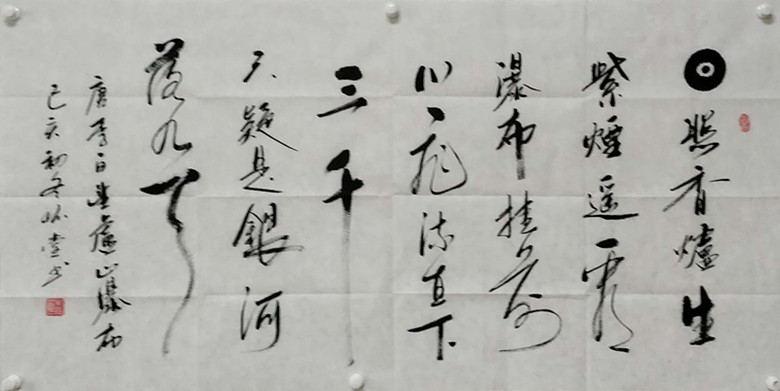 日照香爐生
紫煙遥看
瀑布挂前
川飛流直下
三千
尺疑是銀河
落九天
唐李白望廬山瀑布
己亥初冬堂书